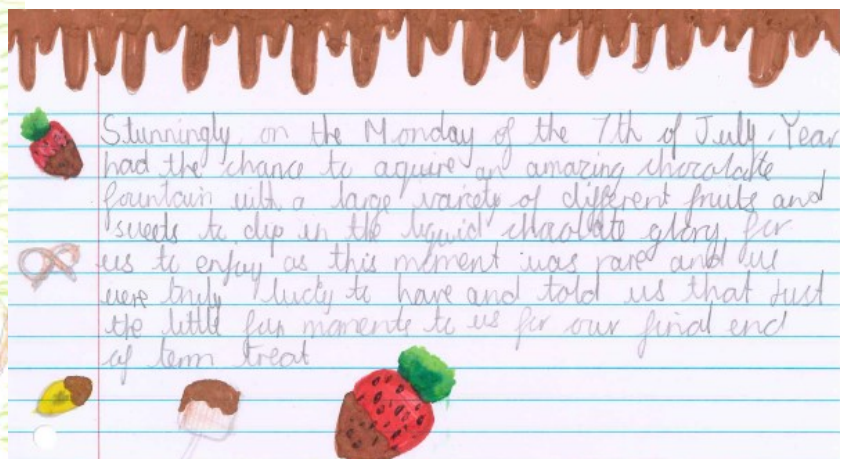 Stunningly, on the Monday of the 7th of July. Year
had the chance to aquire an amazing chocolate
fountain with a large variety of different fruits and
sweets to dip in the liquid chaolate glory for
us to enjoy as this moment was rare and we
were truly lucky to have and told us that Just
the little fun moments to us for our final end
of term treat